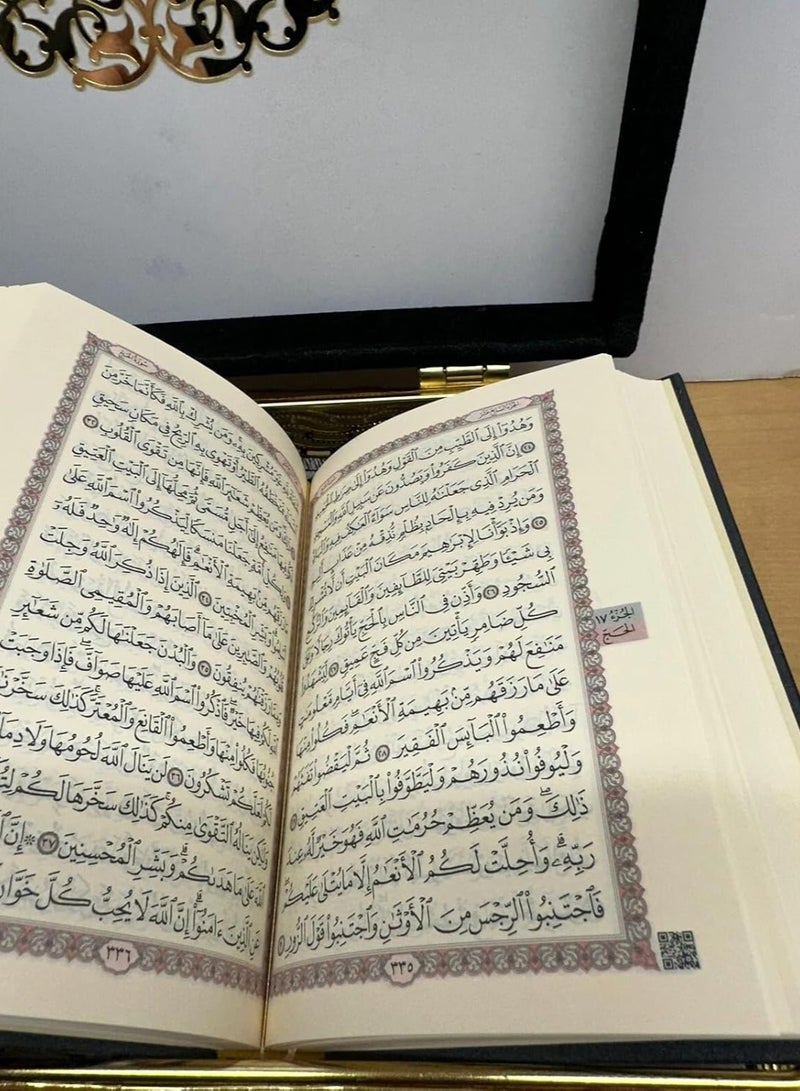 الجُزْءُ السَّابِعَ عَشَرَ
وَهُدُوٓا۟ إِلَى ٱلطَّيِّبِ مِنَ ٱلْقَوْلِ وَهُدُوٓا۟ إِلَىٰ صِرَٰطِ
٢٤ إِنَّ ٱلَّذِينَ كَفَرُوا۟ وَيَصُدُّونَ عَن سَبِيلِ ٱللَّهِ وَٱلْمَسْجِدِ
ٱلْحَرَامِ ٱلَّذِى جَعَلْنَٰهُ لِلنَّاسِ سَوَآءً ٱلْعَٰكِفُ فِيهِ وَٱلْبَادِ
وَمَن يُرِدْ فِيهِ بِإِلْحَادٍۭ بِظُلْمٍ نُّذِقْهُ مِنْ عَذَابٍ
٢٥ وَإِذْ بَوَّأْنَا لِإِبْرَٰهِيمَ مَكَانَ ٱلْبَيْتِ أَن لَّا تُشْرِكْ
بِى شَيْـًٔا وَطَهِّرْ بَيْتِىَ لِلطَّآئِفِينَ وَٱلْقَآئِمِينَ وَٱلرُّكَّعِ
ٱلسُّجُودِ ٢٦ وَأَذِّن فِى ٱلنَّاسِ بِٱلْحَجِّ يَأْتُوكَ رِجَالًا وَعَلَىٰ
كُلِّ ضَامِرٍ يَأْتِينَ مِن كُلِّ فَجٍّ عَمِيقٍ ٢٧ لِّيَشْهَدُوا۟
مَنَٰفِعَ لَهُمْ وَيَذْكُرُوا۟ ٱسْمَ ٱللَّهِ فِىٓ أَيَّامٍ مَّعْلُومَٰتٍ
عَلَىٰ مَا رَزَقَهُم مِّنۢ بَهِيمَةِ ٱلْأَنْعَٰمِ ۖ فَكُلُوا۟ مِنْهَا
وَأَطْعِمُوا۟ ٱلْبَآئِسَ ٱلْفَقِيرَ ٢٨ ثُمَّ لْيَقْضُوا۟ تَفَثَهُمْ
وَلْيُوفُوا۟ نُذُورَهُمْ وَلْيَطَّوَّفُوا۟ بِٱلْبَيْتِ ٱلْعَتِيقِ ٢٩
ذَٰلِكَ وَمَن يُعَظِّمْ حُرُمَٰتِ ٱللَّهِ فَهُوَ خَيْرٌ لَّهُۥ عِندَ
رَبِّهِۦ ۗ وَأُحِلَّتْ لَكُمُ ٱلْأَنْعَٰمُ إِلَّا مَا يُتْلَىٰ عَلَيْكُمْ ۖ
فَٱجْتَنِبُوا۟ ٱلرِّجْسَ مِنَ ٱلْأَوْثَٰنِ وَٱجْتَنِبُوا۟ قَوْلَ ٱلزُّورِ ٣٠
٣٣٥
الجُزْءُ ١٧
الحَجّ
سُورَةُ الحَجِّ
مُشْرِكِينَ بِهِۦ ۚ وَمَن يُشْرِكْ بِٱللَّهِ فَكَأَنَّمَا خَرَّ مِنَ
فَتَخْطَفُهُ ٱلطَّيْرُ أَوْ تَهْوِى بِهِ ٱلرِّيحُ فِى مَكَانٍ سَحِيقٍ
وَمَن يُعَظِّمْ شَعَٰٓئِرَ ٱللَّهِ فَإِنَّهَا مِن تَقْوَى ٱلْقُلُوبِ ٣٢
مَنَٰفِعُ إِلَىٰٓ أَجَلٍ مُّسَمًّى ثُمَّ مَحِلُّهَآ إِلَى ٱلْبَيْتِ ٱلْعَتِيقِ
وَلِكُلِّ أُمَّةٍ جَعَلْنَا مَنسَكًا لِّيَذْكُرُوا۟ ٱسْمَ ٱللَّهِ عَلَىٰ
رَزَقَهُم مِّنۢ بَهِيمَةِ ٱلْأَنْعَٰمِ ۗ فَإِلَٰهُكُمْ إِلَٰهٌ وَٰحِدٌ فَلَهُۥٓ
أَسْلِمُوا۟ ۗ وَبَشِّرِ ٱلْمُخْبِتِينَ ٣٤ ٱلَّذِينَ إِذَا ذُكِرَ ٱللَّهُ وَجِلَتْ
قُلُوبُهُمْ وَٱلصَّٰبِرِينَ عَلَىٰ مَآ أَصَابَهُمْ وَٱلْمُقِيمِى ٱلصَّلَوٰةِ
وَمِمَّا رَزَقْنَٰهُمْ يُنفِقُونَ ٣٥ وَٱلْبُدْنَ جَعَلْنَٰهَا لَكُم مِّن شَعَٰٓئِرِ
لَكُمْ فِيهَا خَيْرٌ ۖ فَٱذْكُرُوا۟ ٱسْمَ ٱللَّهِ عَلَيْهَا صَوَآفَّ ۖ فَإِذَا وَجَبَتْ
جُنُوبُهَا فَكُلُوا۟ مِنْهَا وَأَطْعِمُوا۟ ٱلْقَانِعَ وَٱلْمُعْتَرَّ ۚ كَذَٰلِكَ سَخَّرْنَٰ
لَكُمْ لَعَلَّكُمْ تَشْكُرُونَ ٣٦ لَن يَنَالَ ٱللَّهَ لُحُومُهَا وَلَا دِمَآ
وَلَٰكِن يَنَالُهُ ٱلتَّقْوَىٰ مِنكُمْ ۚ كَذَٰلِكَ سَخَّرَهَا لَكُمْ
ٱللَّهَ عَلَىٰ مَا هَدَىٰكُمْ ۗ وَبَشِّرِ ٱلْمُحْسِنِينَ ٣٧ ۞ إِنَّ
عَنِ ٱلَّذِينَ ءَامَنُوٓا۟ ۗ إِنَّ ٱللَّهَ لَا يُحِبُّ كُلَّ خَوَّانٍ
٣٣٦